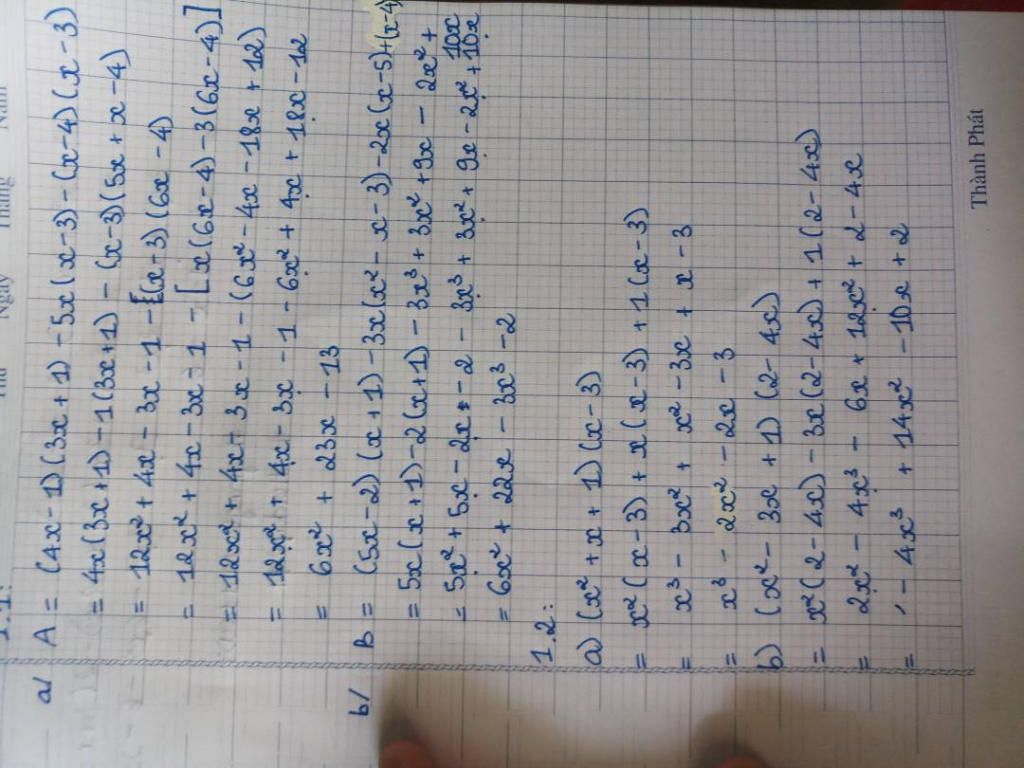 Thứ Ngày Tháng Năm
1.1:
a/ A = (4x - 1)(3x + 1) - 5x(x - 3) - (x - 4)(x - 3)
= 4x(3x + 1) - 1(3x + 1) - (x - 3)(5x + x - 4)
= 12x² + 4x - 3x - 1 - [(x - 3)(6x - 4)
= 12x² + 4x - 3x - 1 - [x(6x - 4) - 3(6x - 4)]
= 12x² + 4x - 3x - 1 - (6x² - 4x - 18x + 12)
= 12x² + 4x - 3x - 1 - 6x² + 4x + 18x - 12
= 6x² + 23x - 13
b/ B = (5x - 2)(x + 1) - 3x(x² - x - 3) - 2x(x - 5) + (x - 4)
= 5x(x + 1) - 2(x + 1) - 3x³ + 3x² + 9x - 2x² + 10x
= 5x² + 5x - 2x - 2 - 3x³ + 3x² + 9x - 2x² + 10x
= 6x² + 22x - 3x³ - 2
1.2:
a) (x² + x + 1)(x - 3)
= x²(x - 3) + x(x - 3) + 1(x - 3)
= x³ - 3x² + x² - 3x + x - 3
= x³ - 2x² - 2x - 3
b) (x² - 3x + 1)(2 - 4x)
= x²(2 - 4x) - 3x(2 - 4x) + 1(2 - 4x)
= 2x² - 4x³ - 6x + 12x² + 2 - 4x
= - 4x³ + 14x² - 10x + 2
Thành Phát